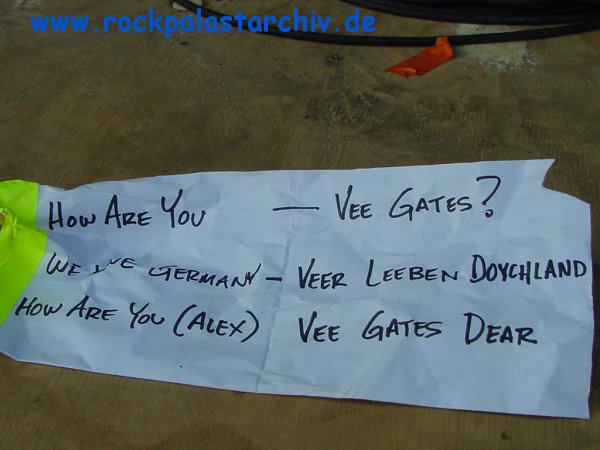 www.rockpalastarchiv.de
HOW ARE YOU — VEE GATES?
WE GERMANY - VEER LEEBEN DOYCHLAND
HOW ARE YOU (ALEX) VEE GATES DEAR